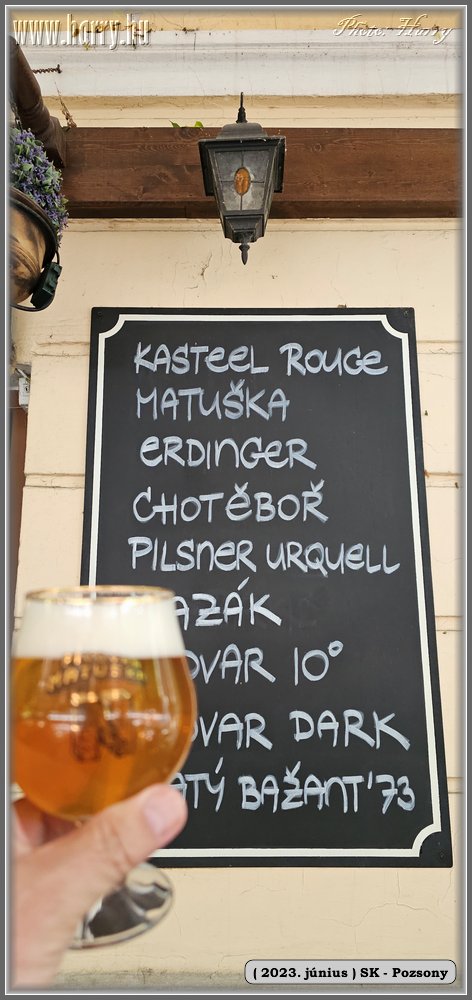 www.harry.hu
Photo: Harry
KASTEEL ROUGE
MATUŠKA
ERDINGER
CHOTĚBOŘ
PILSNER URQUELL
AZÁK
OVAR 10°
OVAR DARK
ATÝ BAŽANT '73
( 2023. június ) SK - Pozsony